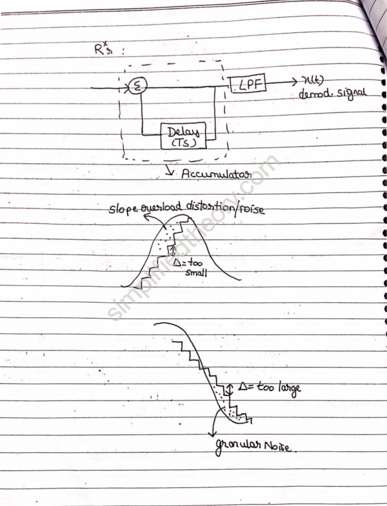 Rxr :
Σ
LPF
x(t)
demod. signal
Delay
(Ts)
Accumulator
slope overload distortion/noise
Δ=too
small
Δ= too large
granular Noise.
simplifiedtheory.com